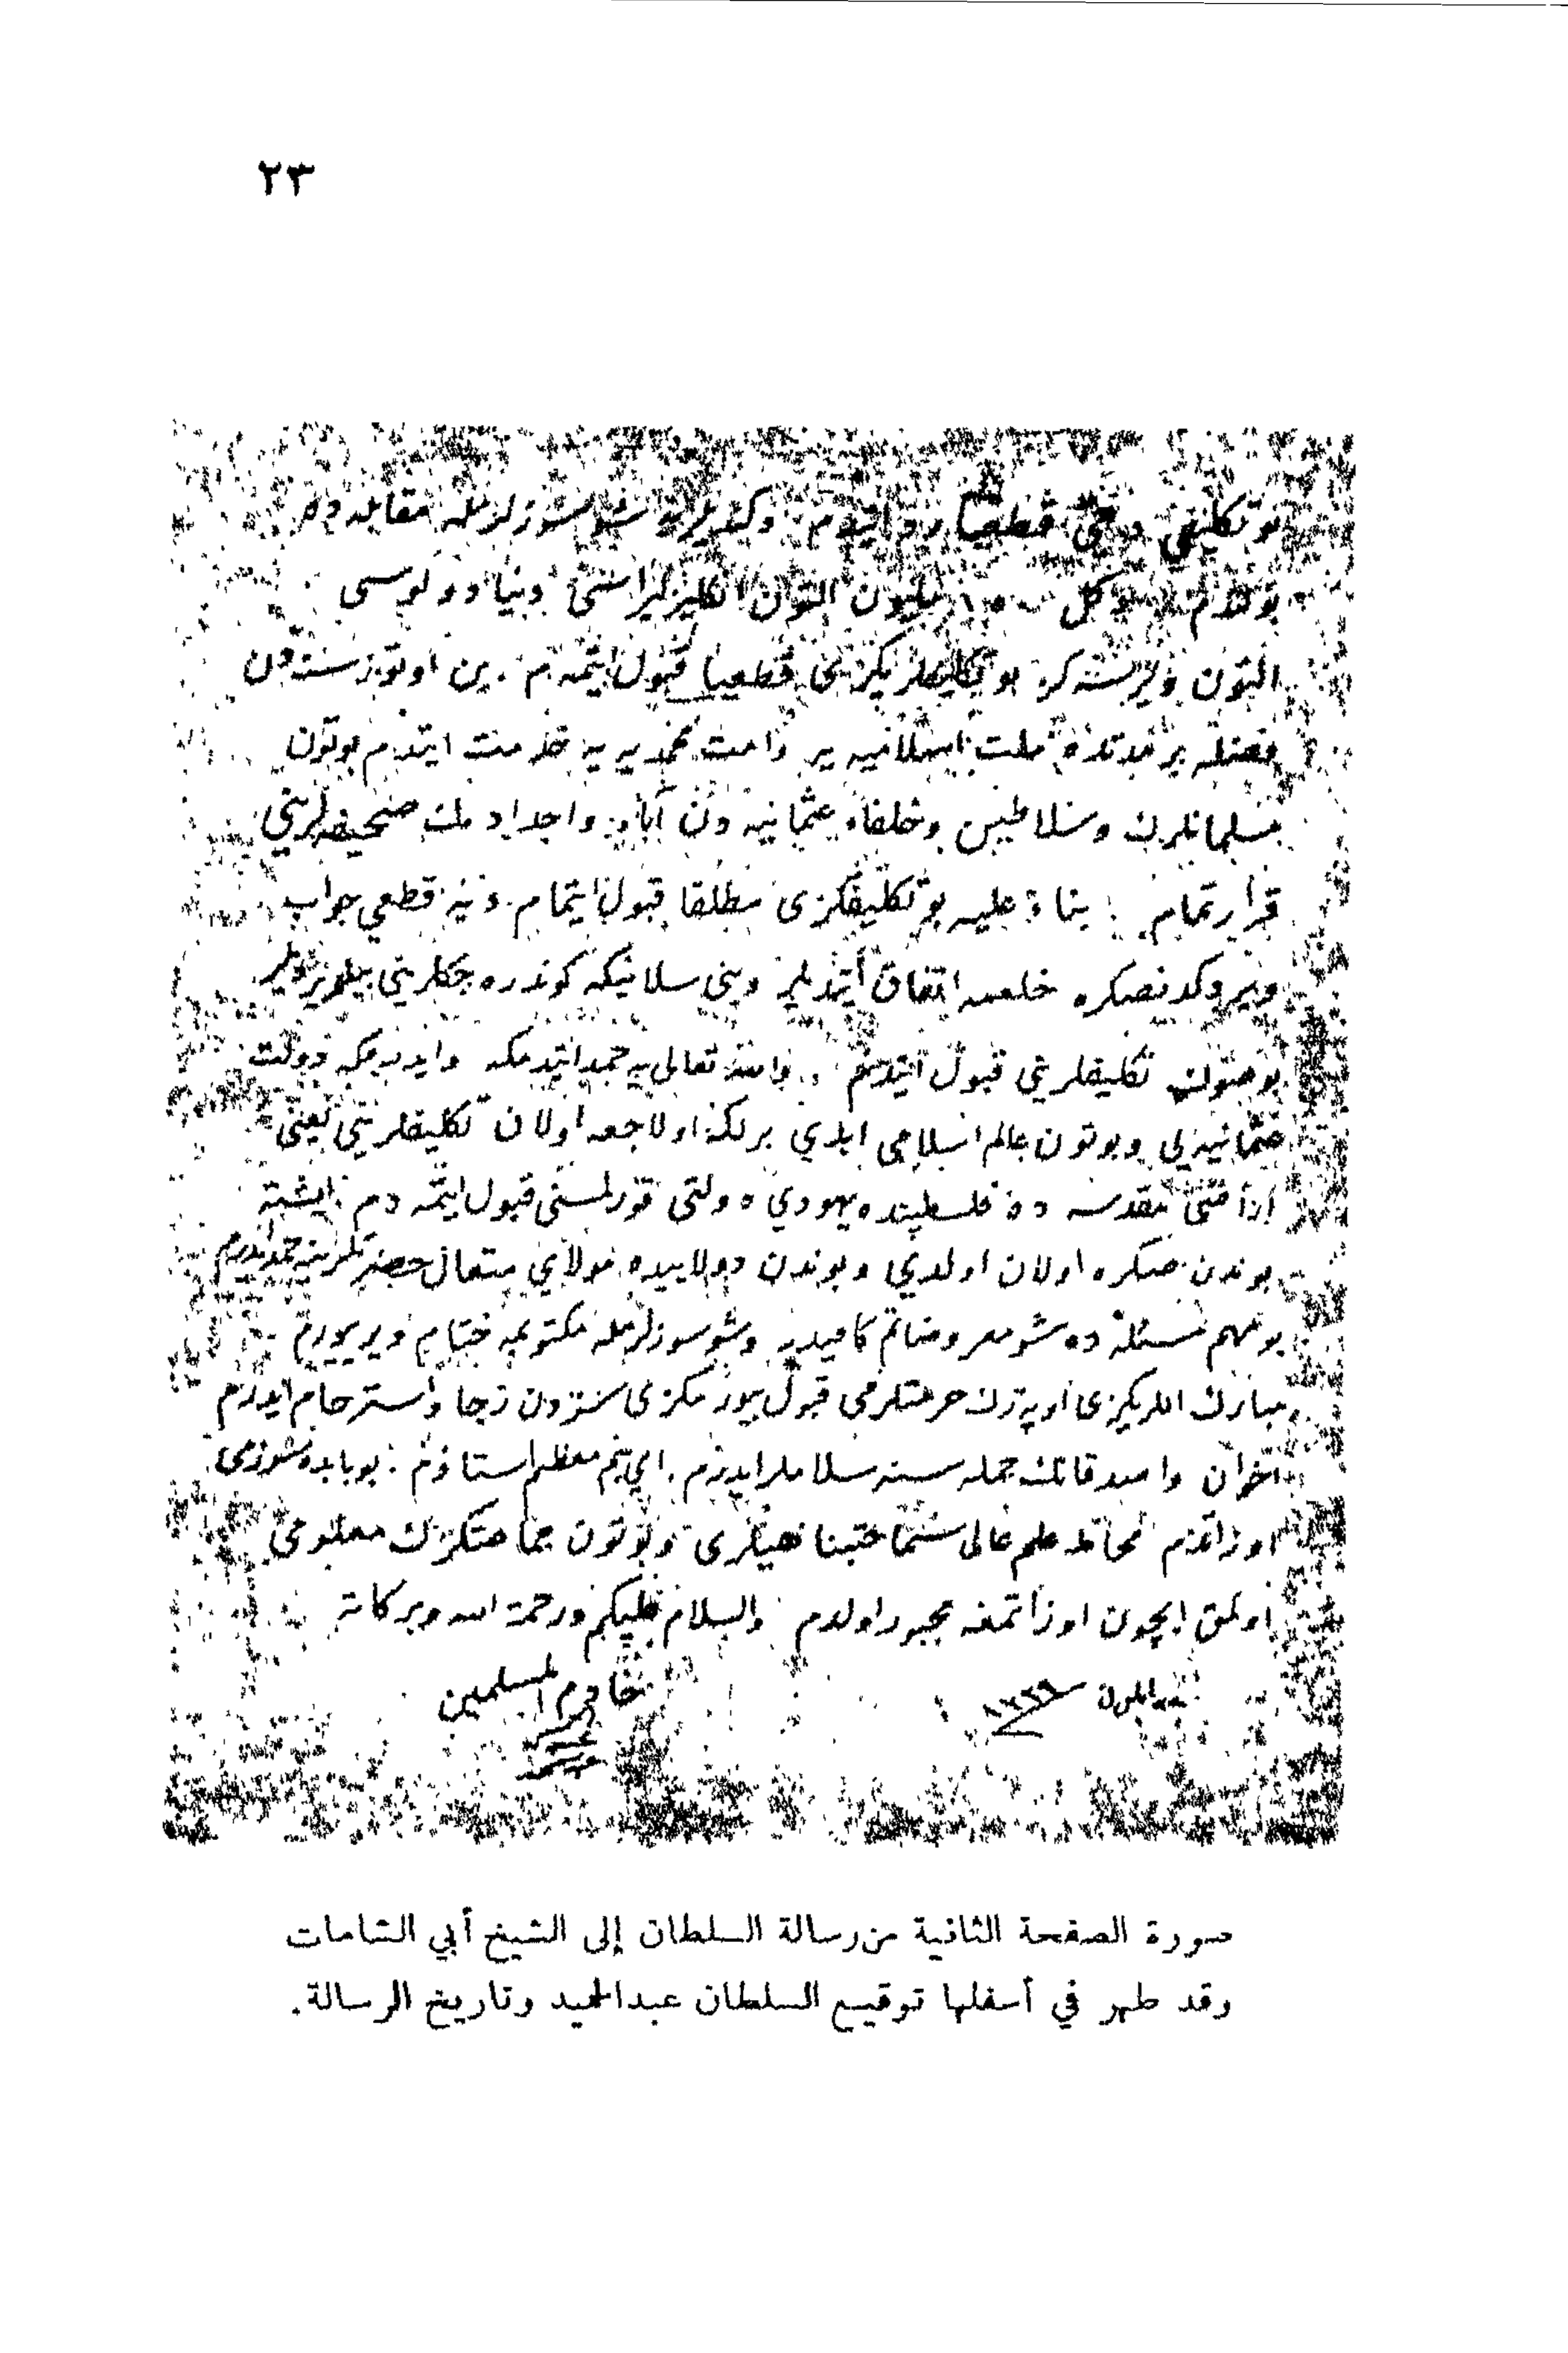 ٢٣
بو تكليفي دخى قطعيا رد ايتدم وكنديلرينه شو سوزلرمله مقابله ده
بولندم دكل ١٥٠ مليون التون انكليز ليراسنى دنيا دولوسى
التون ويرسه كز بو تكليفلريكزى قطعيا قبول ايتمه م. بن اوتوز سنه دن
فضله بر مدتده ملت اسلاميه يه وامت محمديه يه خدمت ايتدم بوتون
مسلمانلرك وسلاطين وخلفاء عثمانيه دن آباء واجدادمك صحيفه لريني
قرارتمام. بناء عليه بو تكليفكزى مطلقا قبول ايتمام دييه قطعي جواب
ويردكدنصكره خلعمه اتفاق ايتديلر وبنى سلانيكه كوندره جكلريني بيلديرديلر
بو صوك تكليفلريني قبول ايتدم. والله تعالى يه حمد ايتدمكه وايدرمكه دولت
عثمانيه يى وبوتون عالم اسلامى ابدي بر لكه اولاجق اولان تكليفلريني يعنى
اراضئ مقدسه ده فلسطينده يهودي دولتى قورلمسنى قبول ايتمه دم ايشته
بوندن صكره اولان اولدي وبوندن دولاييده مولاي متعال حضرتلرينه حمد ايدرم
بو مهم مسئله ده شو معروضاتم كافيدر وشو سوزلرمله مكتوبمه ختام ويرييورم
مبارك اللريكزى اوپه رك حرمتلرمى قبول بيورمكزى سزدن رجا واسترحام ايدرم
اخوان واصدقانك جمله سنه سلاملر ايدرم. اى بنم معظم استاذم: بو بابده سوزمى
اوزاتدم محاط علم عالى سماحتپناهيلرى وبوتون جماعتكزك معلومى
اولمق ايچون اوزاتمغه مجبور اولدم والسلام عليكم ورحمة الله وبركاته
ايلول ١٣٢٩
خادم المسلمين
صورة الصفحة الثانية من رسالة السلطان إلى الشيخ أبي الشامات
وقد ظهر في أسفلها توقيع السلطان عبدالحميد وتاريخ الرسالة.